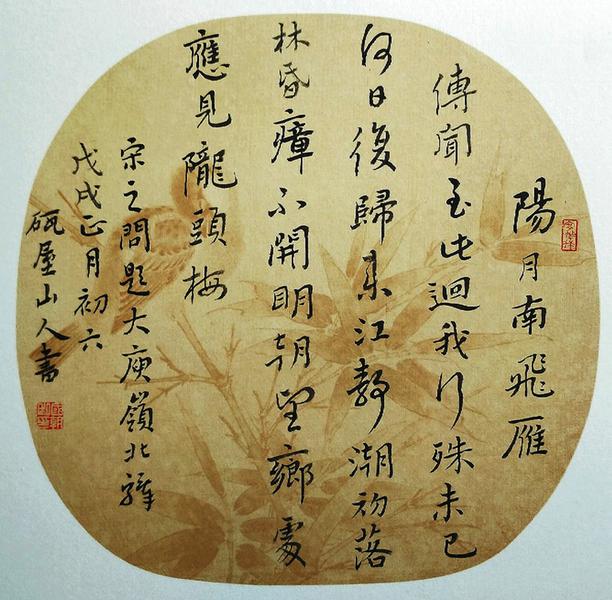 陽月南飛雁
傳聞至此迴我行殊未已
何日復歸來江靜潮初落
林昏瘴不開明朝望鄉處
應見隴頭梅
宋之問題大庾嶺北驛
戊戌正月初六
屋山人書